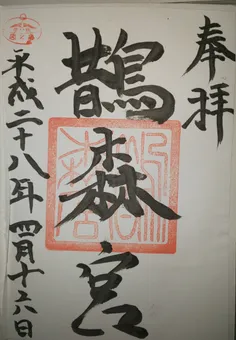 奉拝
鵲森宮
平成二十八年四月十六日